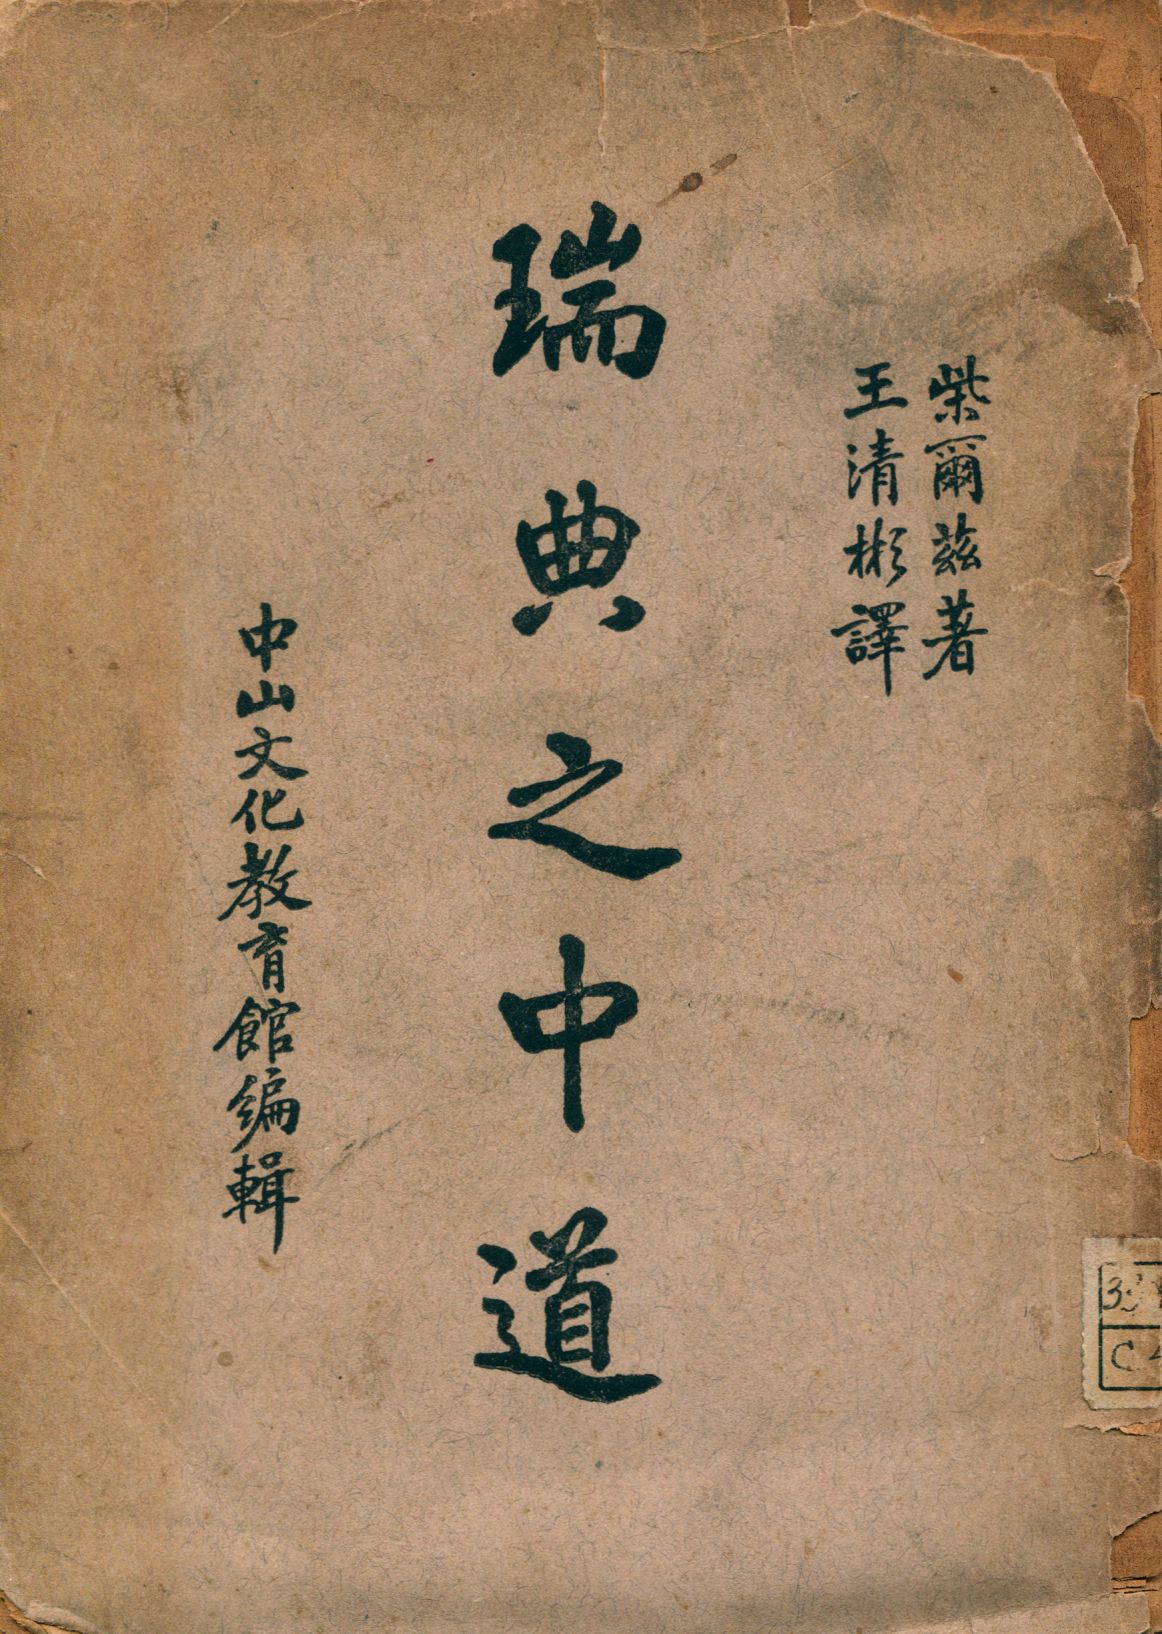 柴爾茲著
王清彬譯
瑞典之中道
中山文化教育館編輯